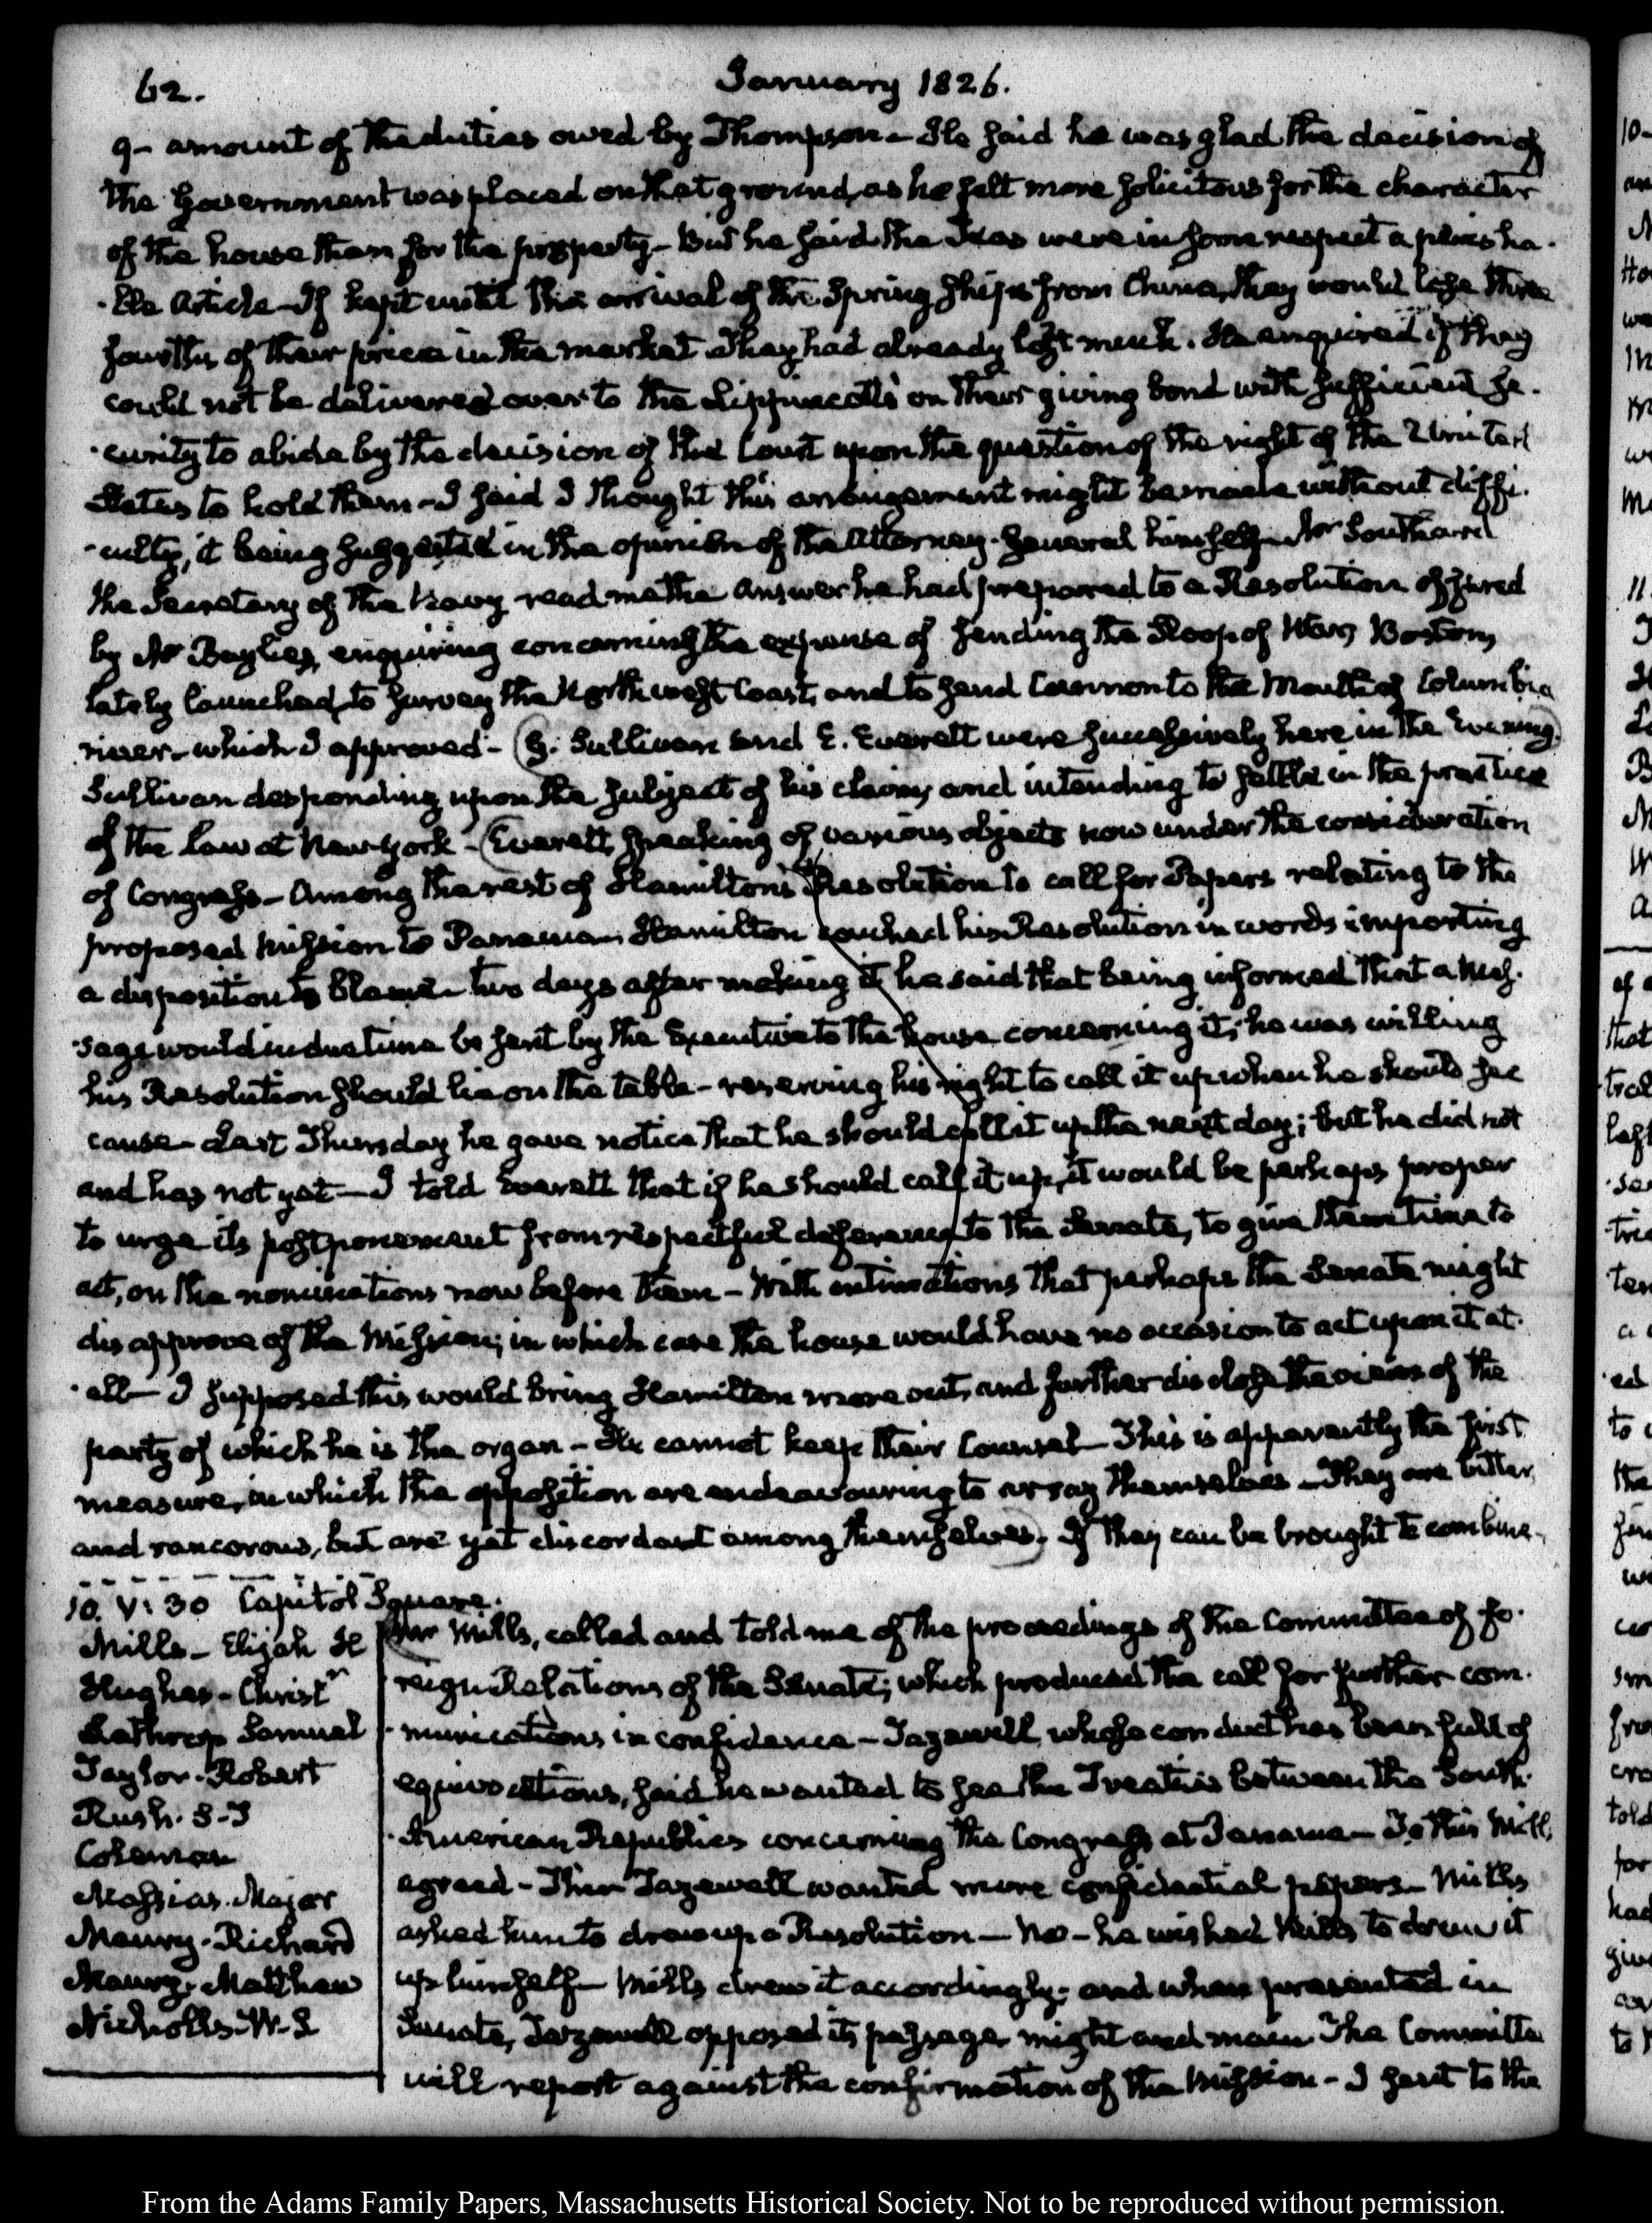 62.
January 1826.
9- amount of the duties owed by Thompson - He said he was glad the decision of
the Government was placed on that ground, as he felt more solicitous for the character
of the house than for the property - But he said the Teas were in some respect a perisha-
-ble Article - If kept until the arrival of the Spring ships from China, they would lose three
fourths of their price in the market. They had already lost much. He enquired if they
could not be delivered over to the Lippincotts on their giving bond with sufficient se-
-curity to abide by the decision of the Court upon the question of the right of the United
States to hold them - I said I thought this arrangement might be made without diffi-
-culty, it being suggested in the opinion of the Attorney-General himself - Mr Southard
the Secretary of the Navy read me the answer he had prepared to a Resolution offered
by Mr Baylies, enquiring concerning the expense of sending the Sloop of War, Boston,
lately launched, to survey the Northwest Coast, and to send Cannon to the Mouth of Columbia
river - which I approved - (G. Sullivan and E. Everett were successively here in the Evening)
Sullivan desponding upon the subject of his claims, and intending to settle in the practice
of the Law at New-York - (Everett, speaking of various objects now under the consideration
of Congress - Among the rest of Hamilton's Resolution to call for Papers relating to the
proposed mission to Panama. Hamilton couched his Resolution in words importing
a disposition to blame - two days after making it, he said that being informed that a Mes-
-sage would in due time be sent by the Executive to the house concerning it, he was willing
his Resolution should lie on the table - reserving his right to call it up when he should see
cause - Last Thursday he gave notice that he should call it up the next day; but he did not
and has not yet - I told Everett that if he should call it up, it would be perhaps proper
to urge its postponement from respectful deference to the Senate, to give them time to
act, on the nominations now before them - With intimations that perhaps the Senate might
disapprove of the Mission; in which case the house would have no occasion to act upon it at
-all - I supposed this would bring Hamilton more out, and further disclose the views of the
party of which he is the organ - He cannot keep their Counsel - This is apparently the first
measure, in which the opposition are endeavouring to array themselves - They are bitter
and rancorous, but are yet discordant among themselves). If they can be brought to combine -
10. V: 30 Capitol Square.
Mills - Elijah H
Hughes - Christr
Lathrop Samuel
Taylor. Robert
Rush.
Coleman
Massias. Major
Maury. Richard
Maury. Matthew
Nicholls. W. S
(Mr Mills, called and told me of the proceedings of the Committee of fo-
reign Relations of the Senate; which produced the call for further com-
-munications in confidence - Tazewell, whose conduct has been full of
equivocations, said he wanted to see the Treaties between the South-
-American Republics concerning the Congress at Panama - To this Mills
agreed - Then Tazewell wanted more confidential papers - Mills
asked him to draw up a Resolution - No - he wished Mills to draw it
up himself - Mills drew it accordingly; and when presented in
Senate, Tazewell opposed its passage might and main. The Committee
will report against the confirmation of the Mission - I sent to the
From the Adams Family Papers, Massachusetts Historical Society. Not to be reproduced without permission.